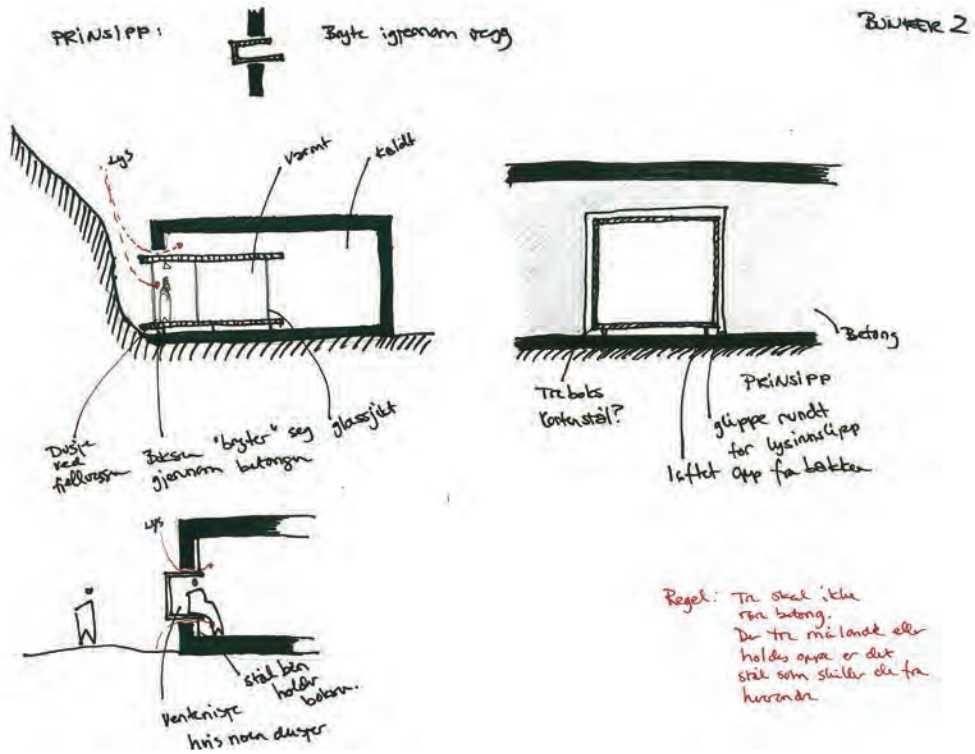 PRINSIPP:
Bryte igjennom vegg
BUNKER 2
Lys
Varmt
kaldt
Betong
Dusje
ved
fjellveggen
Boksen "bryter" seg
gjennom betongen
glassjikt
Treboks
Cortenstål?
PRINSIPP
glippe rundt
for lysinnslipp
løftet opp fra bakken
Lys
stål ben
holder
boksen.
Ventenisje
hvis noen dusjer
Regel: Tre skal ikke
røre betong.
Der tre må lande eller
holdes oppe er det
stål som skiller de fra
hverandre